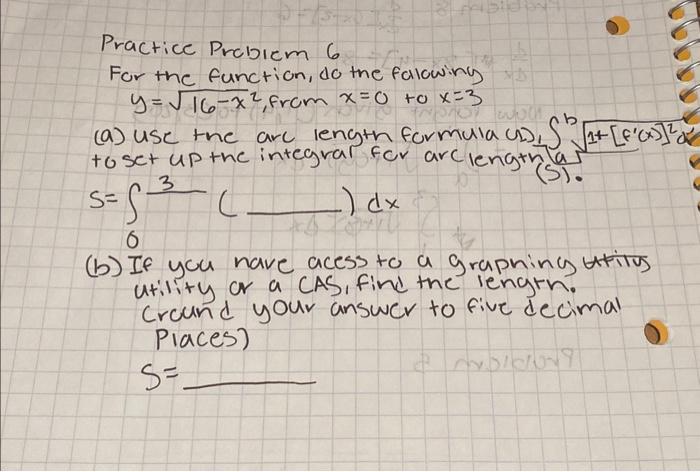 Practice Problem 6
For the function, do the falowing
y=√16-x², from x=0 to x=3
(a) use the arc length formula (1), ∫ₐᵇ √1+[f'(x)]² dx
to set up the integral for arc length (S).
S= ∫₀³ (______) dx
(b) If you have acess to a graphing
utility or a CAS, find the length.
(round your answer to five decimal
Places)
S=______